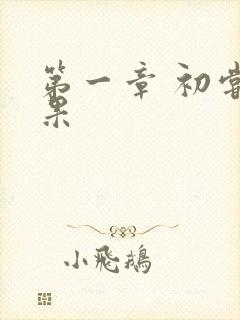 第一章 初尝
果
小飛鵝